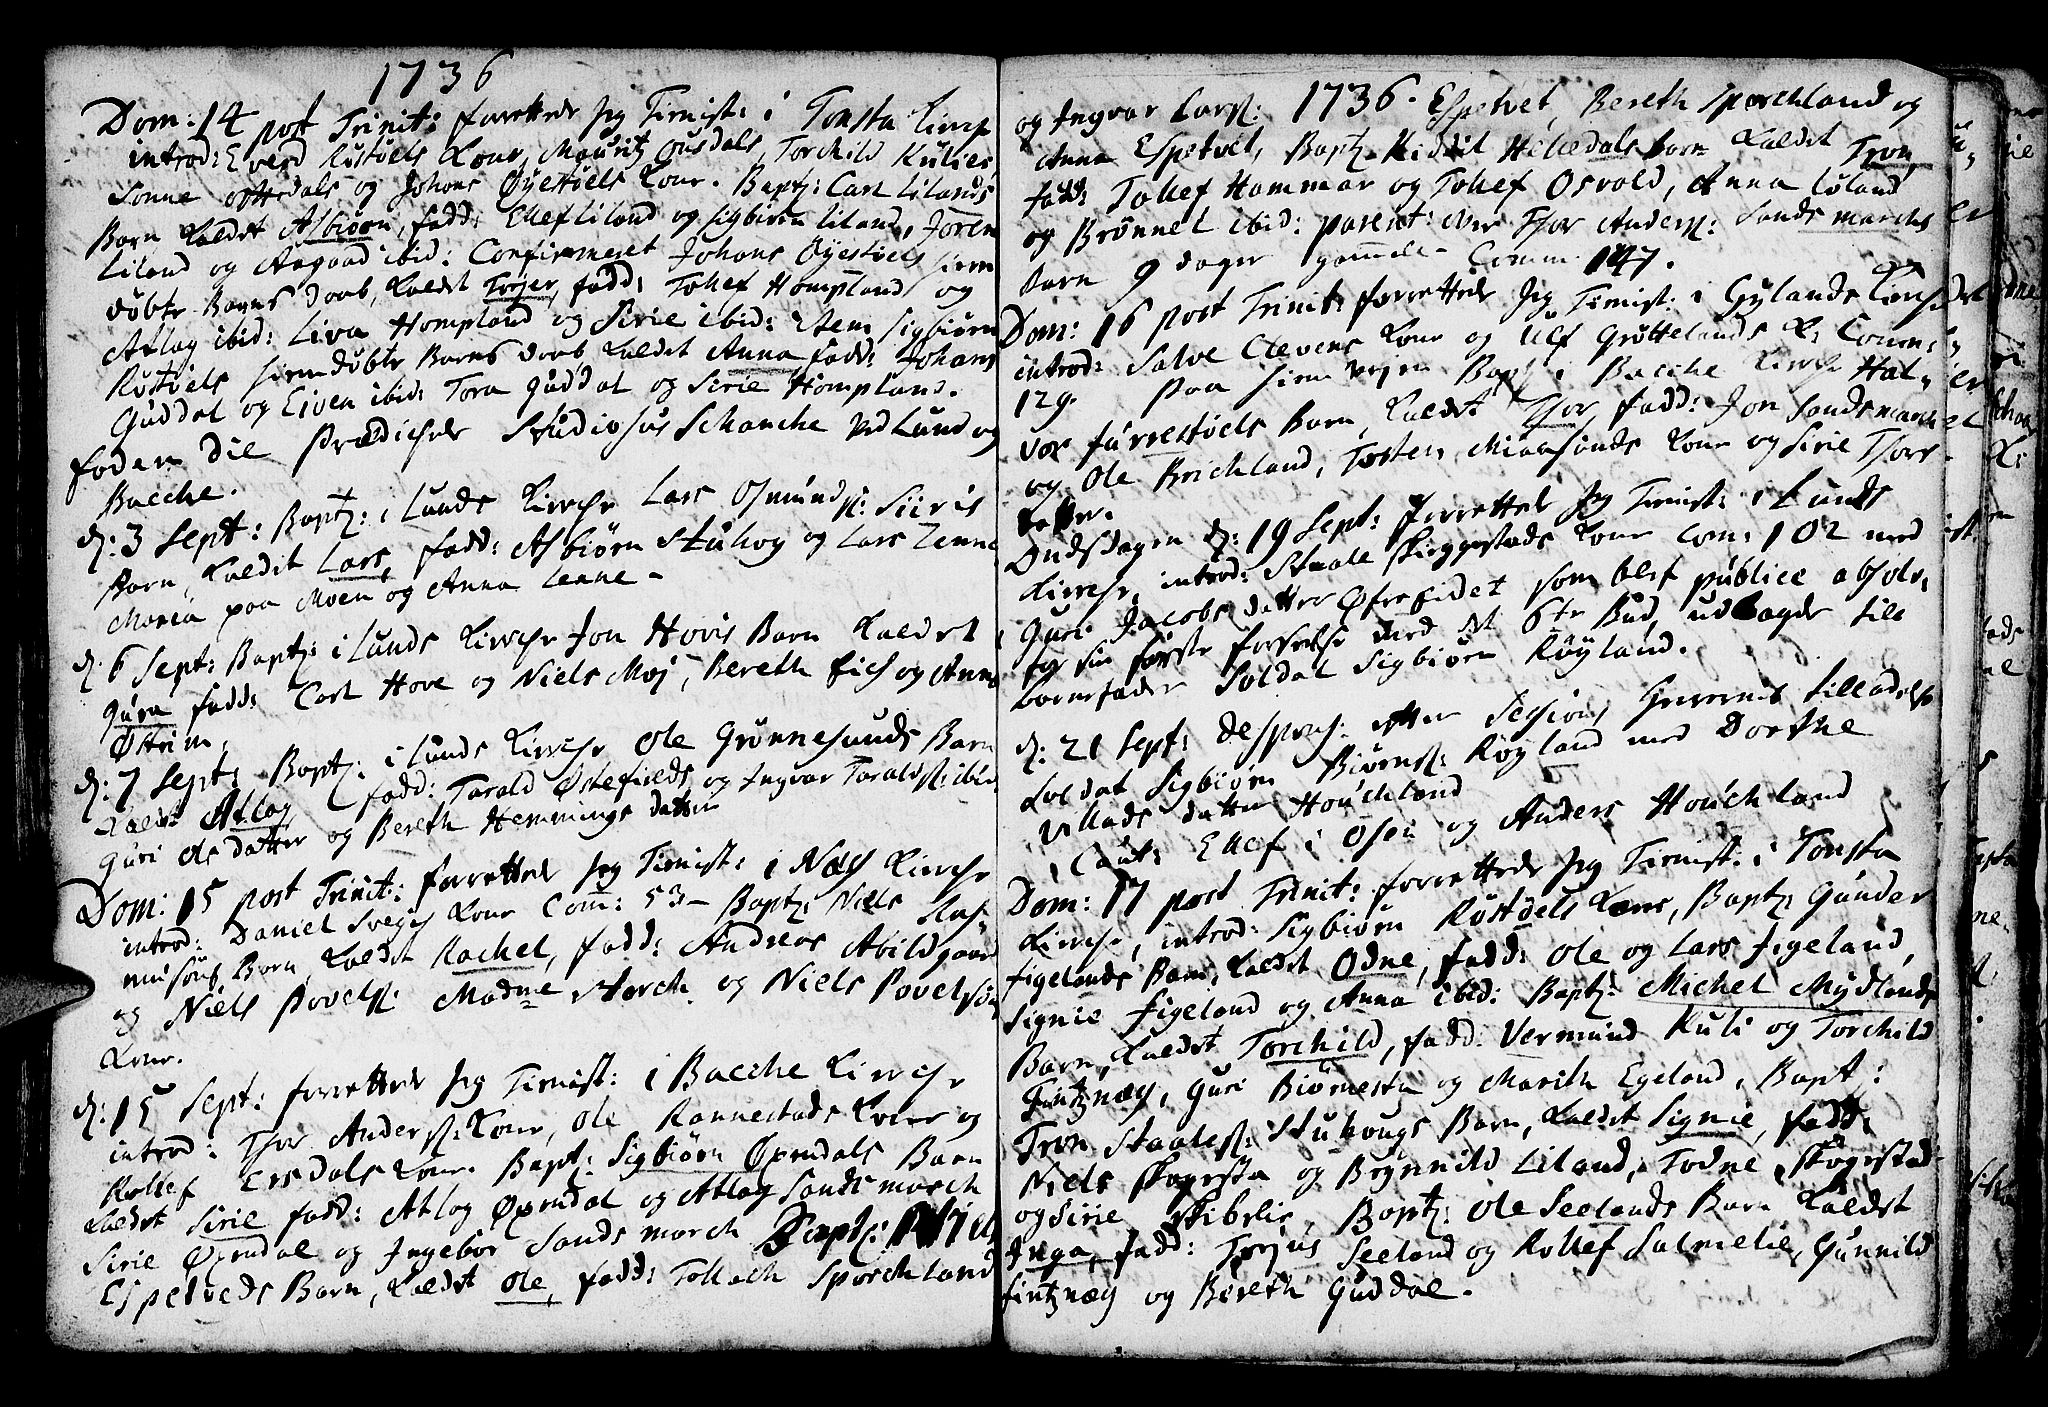 1736
Dom: 14 post Trinit: forrettede Jeg Tienist: i Tonsta Kirche
introd: Everd Røstøels Kone, Mouritz Ousdals, Torchild Kulies,
Sonne Ottedals og Johans Øyestøels Kone. Bapt: Carl Lilands
Barn kaldet Asbiørn, fadd: Ellef Liland og Sigbiørn Liland, Joren
Liland og Aagaad ibid: Confirmeret Johans Øyestøels hiem
døbte Barns daab, kaldet Tojer, fadd: Tollef Hompland og
Atlag ibid: Liva Hompland og Sirie ibid: Item Sigbiørn
Røstøels hiemdøbte Barns daab kaldet Anna, fadd: Johans
Guddal og Eiven ibid: Tora Guddal og Sirie Hompland.
foden die Prædichede Studiosus Schanche ved Lund og
Bacche.
d: 3 Sept: Bapt: i Lunds Kirche Lars Osmunds: Siiris
Barn, kaldet Lars, fadd: Asbiørn Stuhog og Lars Lenne
Maria paa Moen og Anna Lenne -
d: 6 Sept: Bapt: i Lunds Kirche Jon Hovis Barn kaldet
Gura fadd: Carl Hove og Niels Moj, Bereth Eich og Anna
Østrim,
d: 7 Sept: Bapt: i Lunds Kirche Ole Grønnesunds Barn
kaldet Atlag fadd: Tarald Østefields og Ingvar Taralds: ibid
Guri Ols datter og Bereth Hemmings datter
Dom: 15 post Trinit: forrettede Jeg Tienist: i Næs Kirche
introd: Daniel Svegis Kone Com: 53 - Bapt: Niels Ras-
musøns Barn, kaldet Rachel, fadd: Andreas Abildgaard
og Niels Povels: Madme Storch og Niels Povelsøn
Kone.
d: 15 Sept: forrettede Jeg Tienist: i Bacche Kirche
introd: Thor Anders: Kone, Ole Rannestads Kone og
Rollef Ersdals Kone. Bapt: Sigbiørn Øxendals Barn
kaldet Sirie fadd: Atlog Øxendal og Atlag Sandsmarch
Sirie Øxendal og Ingebor Sandsmarch Bapt:
Espetveds Barn, kaldet Ole, fadd: Tollach Sporchland
og Ingvar Lars: 1736. Espetvet, Bereth Sporchland og
Anna Espetvet, Bapt: Kiddil Helledals barn kaldet Tron,
fadd: Tollef Hammar og Tollef Osvold, Anna Løland
og Brønnel ibid: parent: over Thor Anders: Sandsmarchs
Barn 9 dager gammel - Comm: 147.
Dom: 16 post Trinit: forrettede Jeg Tienist: i Gylands Kirche
introd: Salve Clevens Kone og Ulf Grøttelands K: Comm:
129. paa hiem vejen Bapt: i Bacche Kirche Hal-
vor Jørrestøels Barn, kaldet Thor, fadd: Jon Sandsmarch
og Ole Brichland, Tosten Miaasunds Kone og Sirie Thors
datter.
Ondsdagen d: 19 Sept: forrettede Jeg Tienist: i Lunds
Kirche, introd: Staale Skieggestads Kone Com: 102 med
Guri Jacobs datter Øfrefidet som blef publice absolv:
for sin første forseelse med det 6te Bud, udlagde till
barnefader Soldat Sigbiørn Røyland.
d: 21 Sept: Despons: efter Sessions Herrernes tilladelse
Soldat Sigbiørn Biørns: Røyland med Dorthe
Villads datter Houchland
Caut: Ellef i Osen og Anders Houchland
Dom: 17 post Trinit: forrettede Jeg Tienist: i Tonsta
Kirche, introd: Sigbiørn Røstøels Kone, Bapt: Gunder
Figelands Barn, kaldet Odne, fadd: Ole og Lars Figeland,
Signie Figeland og Anna ibid: Bapt: Michel Mydlands
Barn, kaldet Torchild, fadd: Vermund Kuli og Torchild
Fintznæs, Guri Biørnestad og Marith Egeland, Bapt:
Tron Staales: Stuhougs Barn, kaldet Signie, fadd:
Niels Skogesta og Brynnild Liland, Todne Skogestad
og Sirie Skibelie, Bapt: Ole Seelands Barn kaldet
Inga, fadd: Torjus Seeland og Rollef Salmelie, Gunnild
Fintznæs og Bereth Guddal.